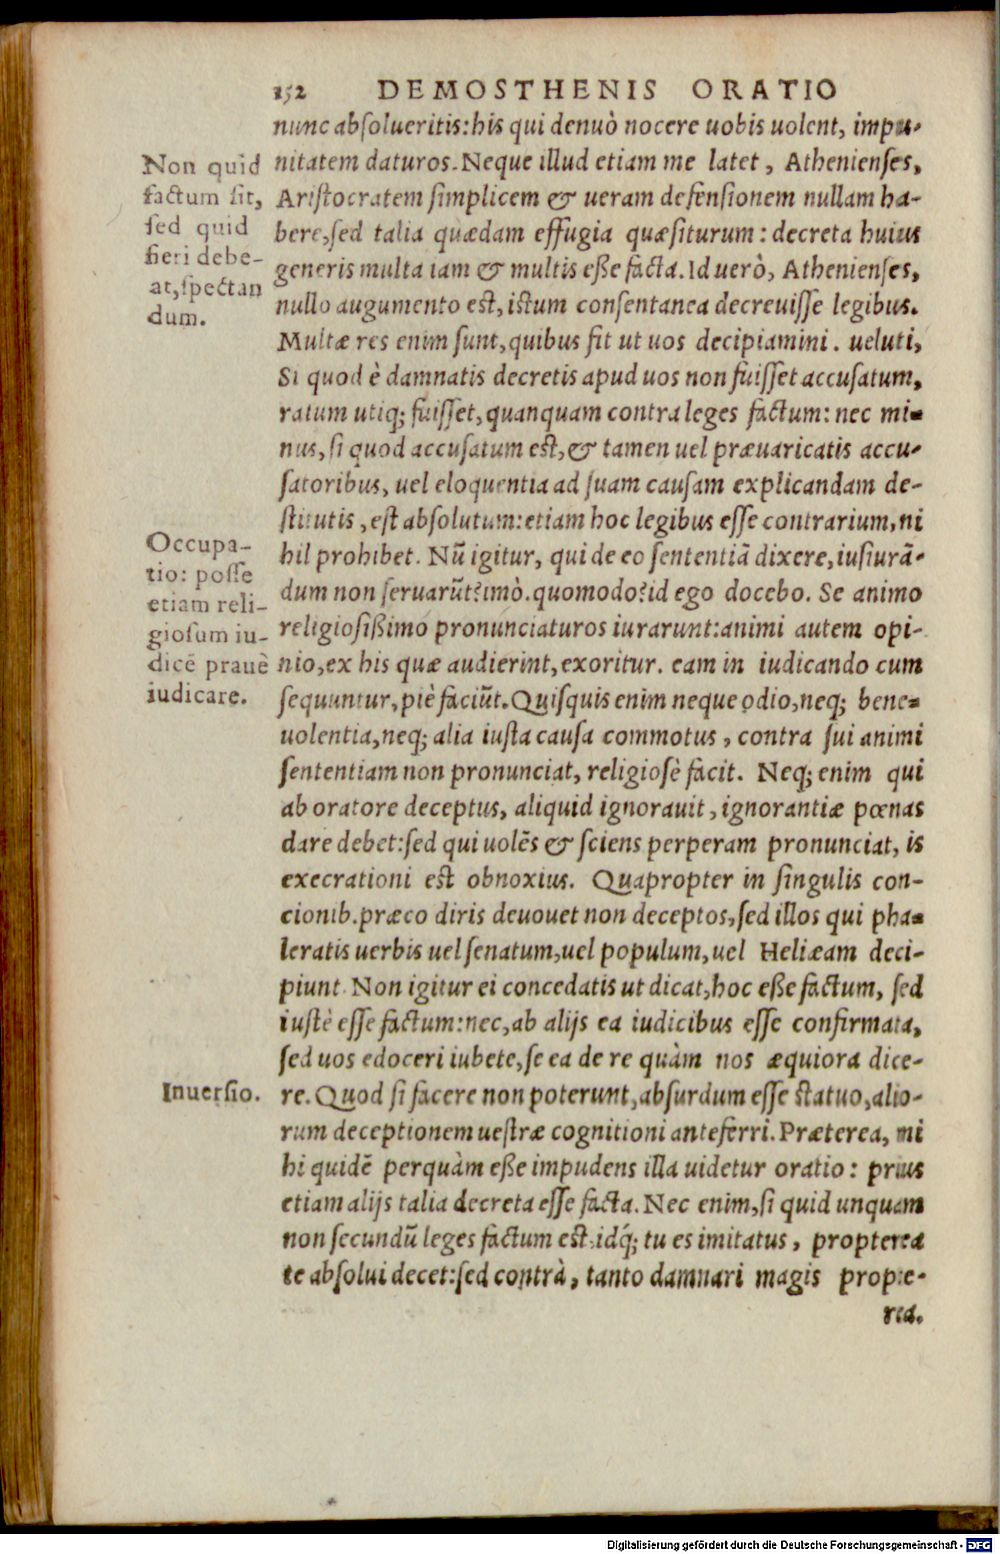 152 DEMOSTHENIS ORATIO
nunc absolueritis: his qui denuò nocere uobis uolent, impu-
nitatem daturos. Neque illud etiam me latet, Athenienses,
Aristocratem simplicem & ueram defensionem nullam ha-
bere, sed talia quædam effugia quæsiturum: decreta huius
generis multa iam & multis eße facta. Id uerò, Athenienses,
nullo augumento est, istum consentanea decreuisse legibus.
Multæ res enim sunt, quibus fit ut uos decipiamini. ueluti,
Si quod è damnatis decretis apud uos non fuisset accusatum,
ratum utiq; fuisset, quanquam contra leges factum: nec mi-
nus, si quod accusatum est, & tamen uel præuaricatis accu-
satoribus, uel eloquentia ad suam causam explicandam de-
stitutis, est absolutum: etiam hoc legibus esse contrarium, ni
hil prohibet. Nũ igitur, qui de eo sententiã dixere, iusiurã-
dum non seruarũt? imò. quomodo? id ego docebo. Se animo
religiosißimo pronunciaturos iurarunt: animi autem opi-
nio, ex his quæ audierint, exoritur. eam in iudicando cum
sequuntur, piè faciũt. Quisquis enim neque odio, neq; bene-
uolentia, neq; alia iusta causa commotus, contra sui animi
sententiam non pronunciat, religiosè facit. Neq; enim qui
ab oratore deceptus, aliquid ignorauit, ignorantiæ pœnas
dare debet: sed qui uolẽs & sciens perperam pronunciat, is
execrationi est obnoxius. Quapropter in singulis con-
cionib. præco diris deuouet non deceptos, sed illos qui pha-
leratis uerbis uel senatum, uel populum, uel Heliæam deci-
piunt. Non igitur ei concedatis ut dicat, hoc eße factum, sed
iustè esse factum: nec, ab alijs ea iudicibus esse confirmata,
sed uos edoceri iubete, se ea de re quàm nos æquiora dice-
re. Quod si facere non poterunt, absurdum esse statuo, alio-
rum deceptionem uestræ cognitioni anteferri. Præterea, mi
hi quidẽ perquàm eße impudens illa uidetur oratio: prius
etiam alijs talia decreta esse facta. Nec enim, si quid unquam
non secundũ leges factum est, idq́; tu es imitatus, propterea
te absolui decet: sed contrà, tanto damnari magis propte-
rea.
Non quid
factum sit,
sed quid
fieri debe-
at, spectan
dum.
Occupa-
tio: posse
etiam reli-
giosum iu-
dicẽ prauè
iudicare.
Inuersio.
Digitalisierung gefördert durch die Deutsche Forschungsgemeinschaft - DFG